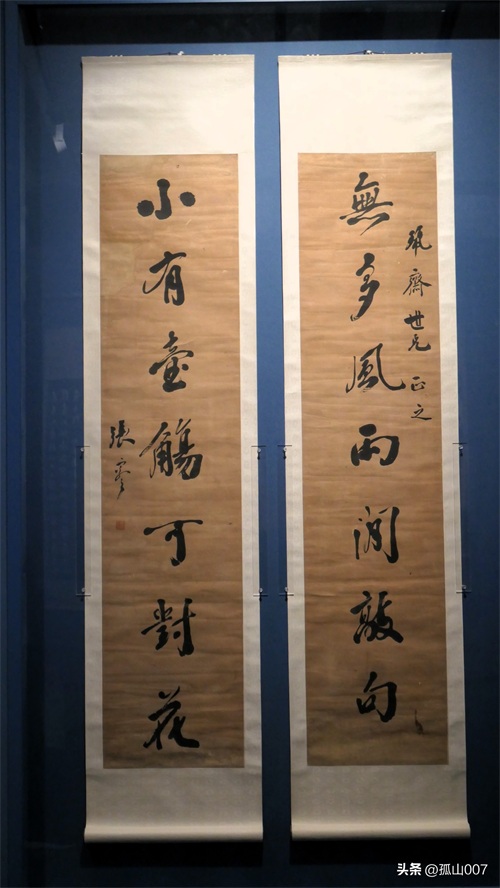 齋世兄正之
無多風雨閒敲句
小有壺觴可對花
張謇
头条 @孤山007